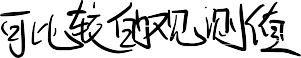 可比较的观测值